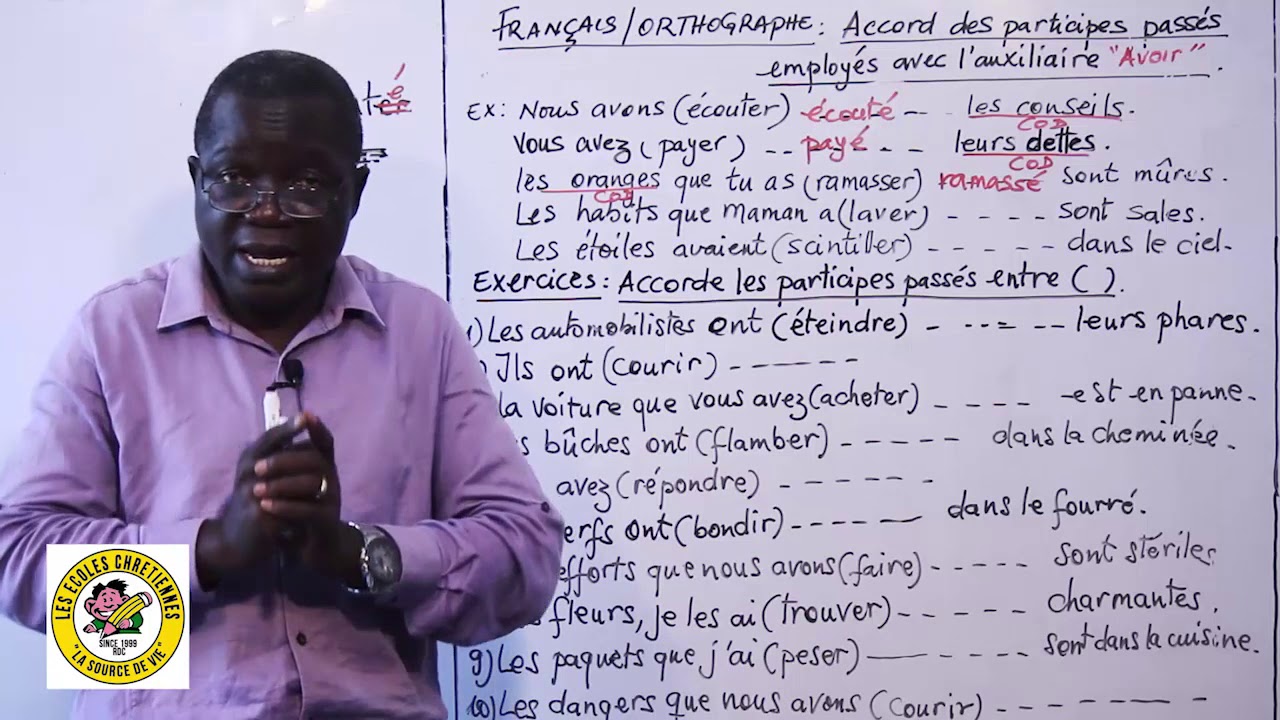 FRANÇAIS/ORTHOGRAPHE: Accord des participes passés
employés avec l'auxiliaire "Avoir".
EX: Nous avons (écouter) écouté -- les conseils.
COD
Vous avez (payer) -- payé -- leurs dettes.
COD
les oranges que tu as (ramasser) ramassé sont mûres.
COD
Les habits que maman a (laver) ---- sont sales.
Les étoiles avaient (scintiller) ----- dans le ciel.
Exercices: Accorde les participes passés entre ( ).
1) Les automobilistes ont (éteindre) - ---- -- leurs phares.
) Ils ont (courir) ------
la voiture que vous avez (acheter) ---- est en panne.
s bûches ont (flamber) ----- dans la cheminée.
avez (répondre) ------
erfs ont (bondir) ----- dans le fourré.
efforts que nous avons (faire) ----- sont stériles
fleurs, je les ai (trouver) ----- charmantes.
9) Les paquets que j'ai (peser) ----- sont dans la cuisine.
10) Les dangers que nous avons (courir) ------
LES ECOLES CHRETIENNES
SINCE 1999
RDC
"LA SOURCE DE VIE"